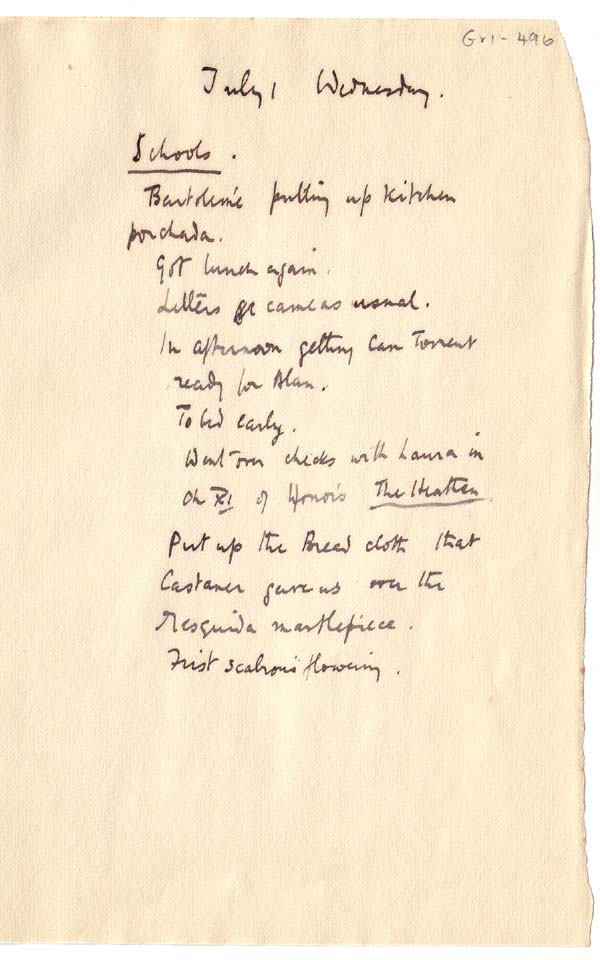 Gr1 - 496
July 1 Wednesday.
Schools.
Bartolomé putting up kitchen
porchada.
Got lunch again.
Letters came as usual.
In afternoon getting Can Torrent
ready for Alan.
To bed early.
Went over checks with Laura in
Ch XI of Honor's The Heathen.
Put up the Breed cloth that
Castaner gave us over the
Mesquida mantlepiece.
First flowering.